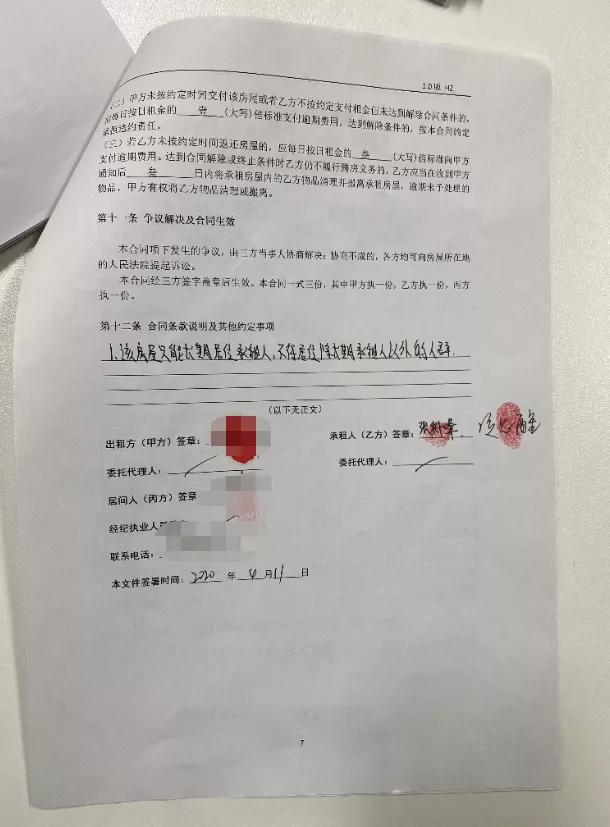 1.0版 HZ
(二) 甲方未按约定时间交付该房屋或者乙方不按约定支付租金但未达到解除合同条件的,
应每日按日租金的 壹 (大写)倍标准支付逾期费用, 达到解除条件的, 按本合同约定
承担违约责任。
(三) 若乙方未按约定时间返还房屋的, 应每日按日租金的 叁 (大写)倍标准向甲方
支付逾期费用。达到合同解除或终止条件时乙方仍不履行腾房义务的, 乙方应当在收到甲方
通知后 叁 日内将承租房屋内的乙方物品清理并搬离承租房屋, 逾期未予处理的
物品, 甲方有权将乙方物品清理或搬离。
第十一条 争议解决及合同生效
本合同项下发生的争议, 由三方当事人协商解决; 协商不成的, 各方均可向房屋所在地
的人民法院提起诉讼。
本合同经三方签字盖章后生效。本合同一式三份, 其中甲方执一份, 乙方执一份, 丙方
执一份。
第十二条 合同条款说明及其他约定事项
1.该房屋只能长期居住承租人,不得居住除长期承租人以外的人群.
(以下无正文)
出租方（甲方）签章:
承租人（乙方）签章:
委托代理人:
委托代理人:
居间人（丙方）签章
经纪执业人
联系电话:
本文件签署时间: 2020 年 4 月 11 日
7